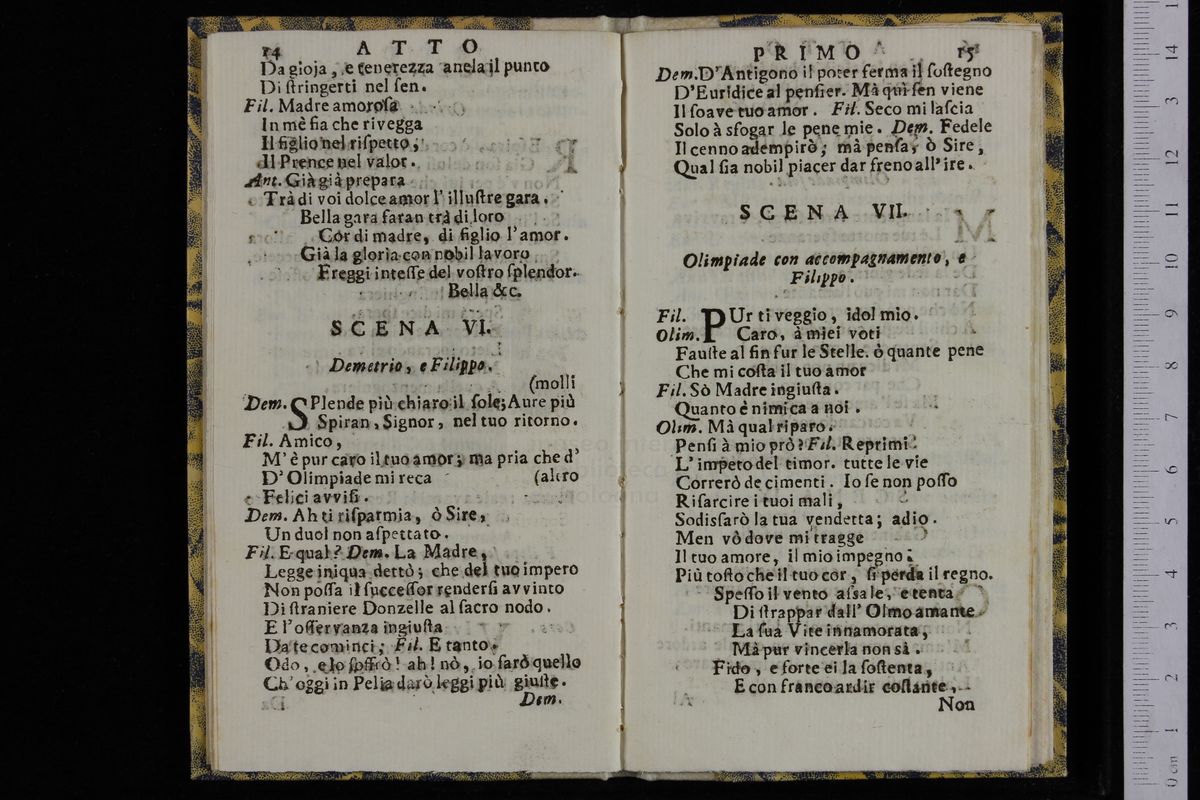 14 ATTO
Da gioja, e tenerezza anela il punto
Di ſtringerti nel ſen.
Fil. Madre amoroſa
In mè ſia che rivegga
Il figlio nel riſpetto,
Il Prence nel valor.
Ant. Già già prepara
Trà di voi dolce amor l' illuſtre gara.
Bella gara faran trà di loro
Cor di madre, di figlio l'amor.
Già la gloria con nobil lavoro
Freggi inteſſe del voſtro ſplendor.
Bella &c.
SCENA VI.
Demetrio, e Filippo.
(molli
Dem. SPlende più chiaro il ſole; Aure più
Spiran, Signor, nel tuo ritorno.
Fil. Amico,
M' è pur caro il tuo amor; ma pria che d'
D' Olimpiade mi reca (altro
Felici avviſi.
Dem. Ah ti riſparmia, ò Sire,
Un duol non aſpettato.
Fil. E qual? Dem. La Madre,
Legge iniqua dettò; che del tuo impero
Non poſſa il ſucceſſor renderſi avvinto
Di ſtraniere Donzelle al ſacro nodo.
E l'oſſervanza ingiuſta
Da te cominci; Fil. E tanto.
Odo, e lo ſoffrò! ah! nò, io ſarò quello
Ch'oggi in Pelia darò leggi più giuſte.
Dem.
PRIMO 15
Dem. D'Antigono il poter ferma il ſoſtegno
D'Euridice al penſier. Mà qui ſen viene
Il ſoave tuo amor. Fil. Seco mi laſcia
Solo à sfogar le pene mie. Dem. Fedele
Il cenno adempirò; mà penſa, ò Sire,
Qual ſia nobil piacer dar freno all' ire.
SCENA VII.
Olimpiade con accompagnamento, e
Filippo.
Fil. PUr ti veggio, idol mio.
Olim. Caro, à miei voti
Fauſte al fin fur le Stelle. ò quante pene
Che mi coſta il tuo amor
Fil. Sò Madre ingiuſta.
Quanto è nimica a noi.
Olim. Mà qual riparo.
Penſi à mio prò? Fil. Reprimi
L' impeto del timor. tutte le vie
Correrò de cimenti. Io ſe non poſſo
Riſarcire i tuoi mali,
Sodisfarò la tua vendetta; adio.
Men vò dove mi tragge
Il tuo amore, il mio impegno.
Più toſto che il tuo cor, ſi perda il regno.
Speſſo il vento aſsale, e tenta
Di ſtrappar dall' Olmo amante
La ſua Vite innamorata,
Mà pur vincerla non sà.
Fido, e forte ei la ſoſtenta,
E con franco ardir coſtante,
Non